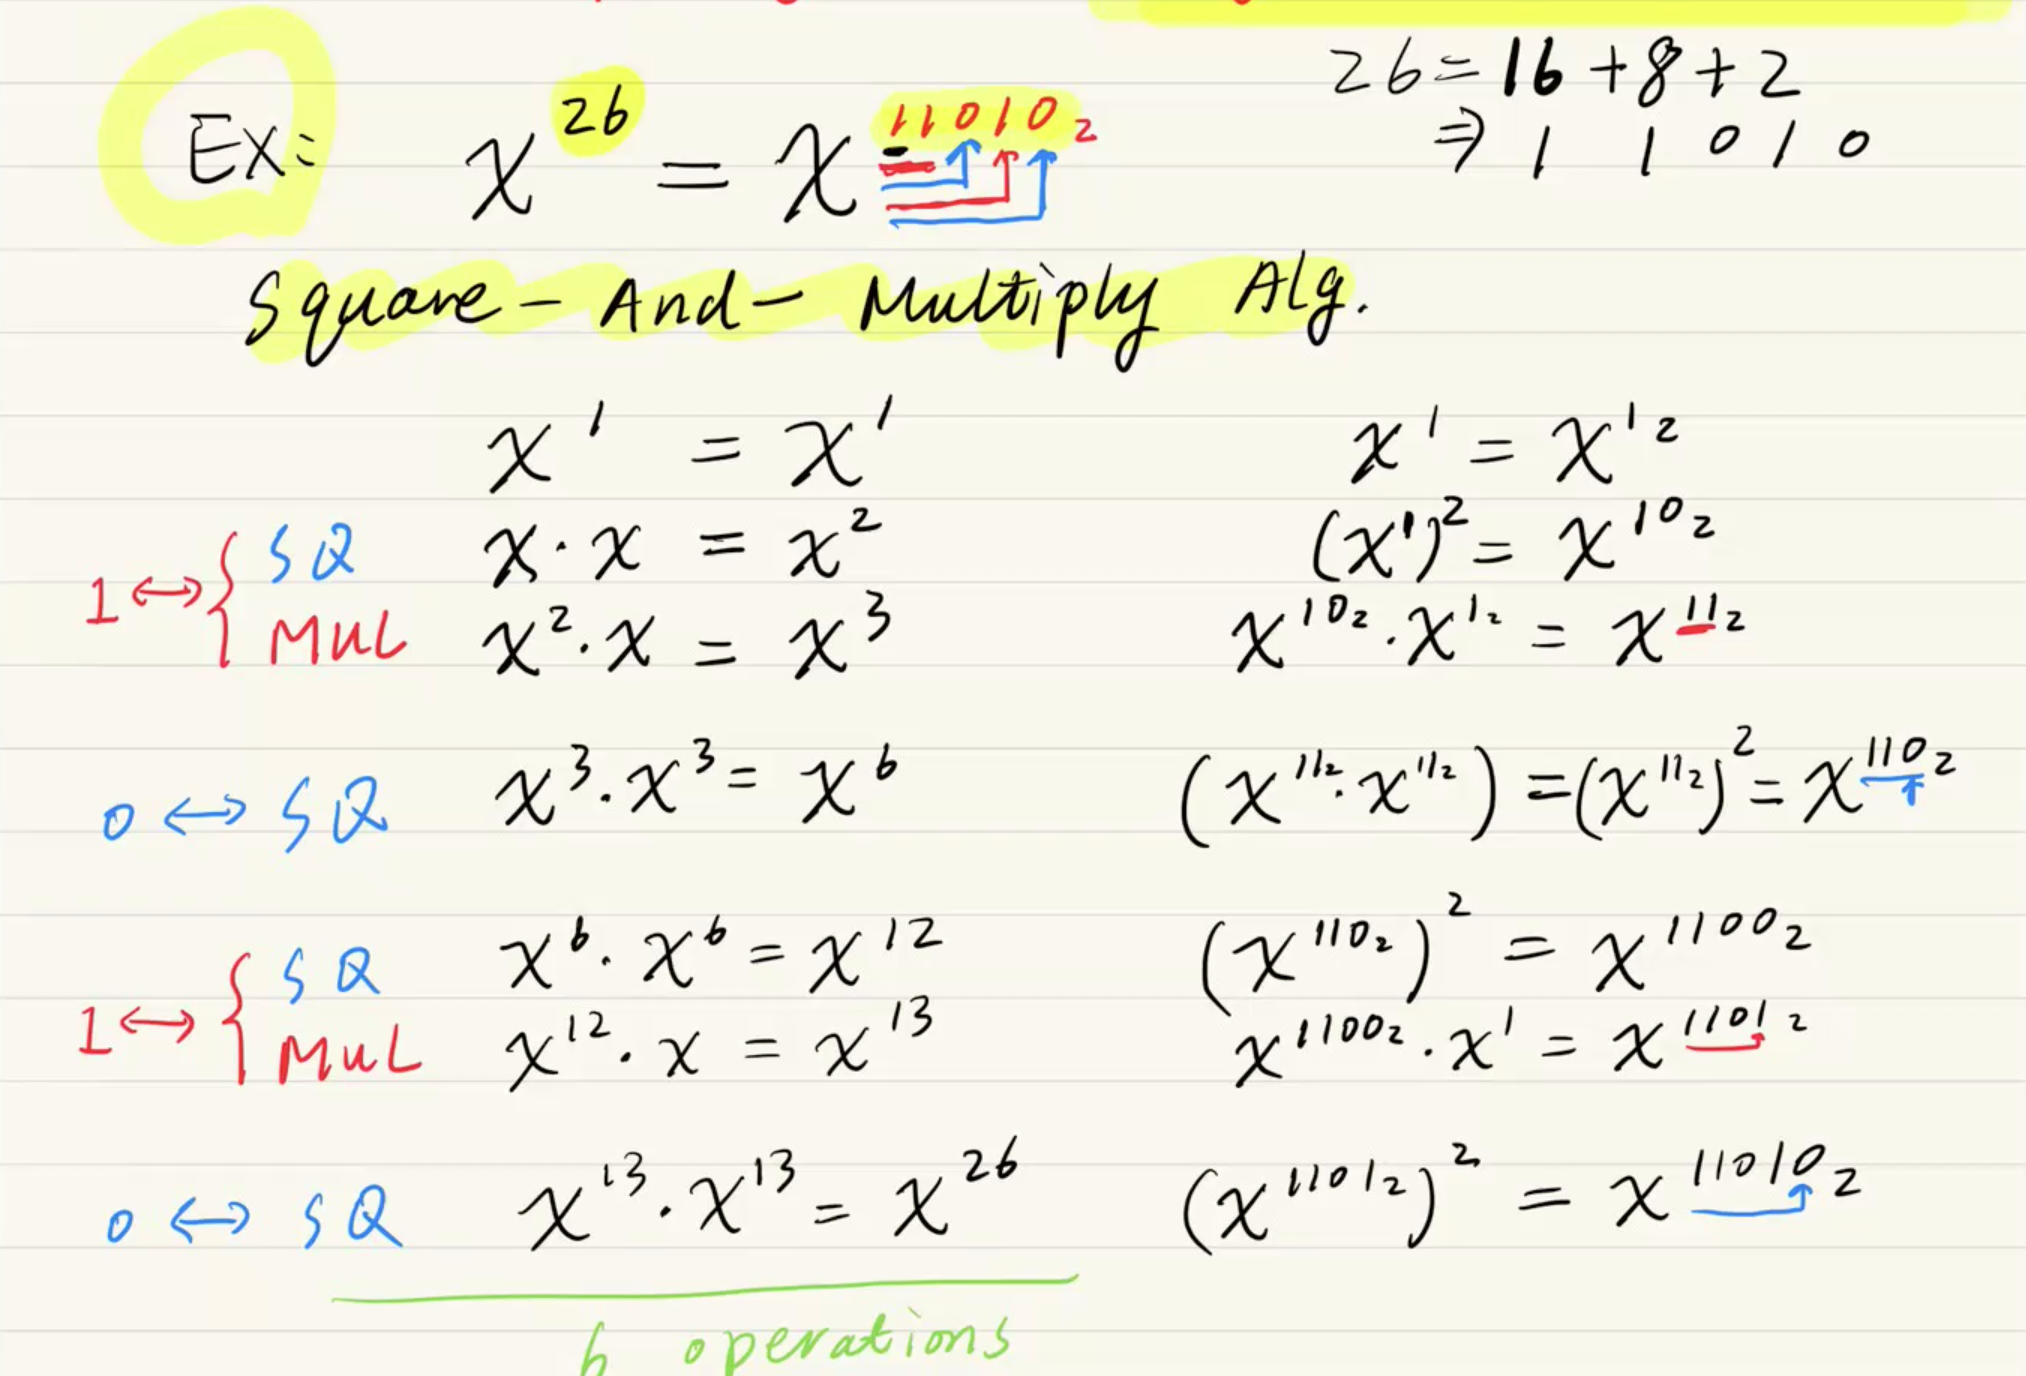 26 = 16 + 8 + 2
⇒ 1 1 0 1 0
Ex: x^26 = x^11010₂
Square-And-Multiply Alg.
x^1 = x^1    x^1 = x^1₂
SQ x·x = x^2    (x^1)^2 = x^10₂
1 ↔ {
MUL x^2·x = x^3    x^10₂·x^1₂ = x^11₂
0 ↔ SQ x^3·x^3 = x^6    (x^11₂·x^11₂) = (x^11₂)^2 = x^110₂
SQ x^6·x^6 = x^12    (x^110₂)^2 = x^1100₂
1 ↔ {
MUL x^12·x = x^13    x^1100₂·x^1 = x^1101₂
0 ↔ SQ x^13·x^13 = x^26    (x^1101₂)^2 = x^11010₂
6 operations